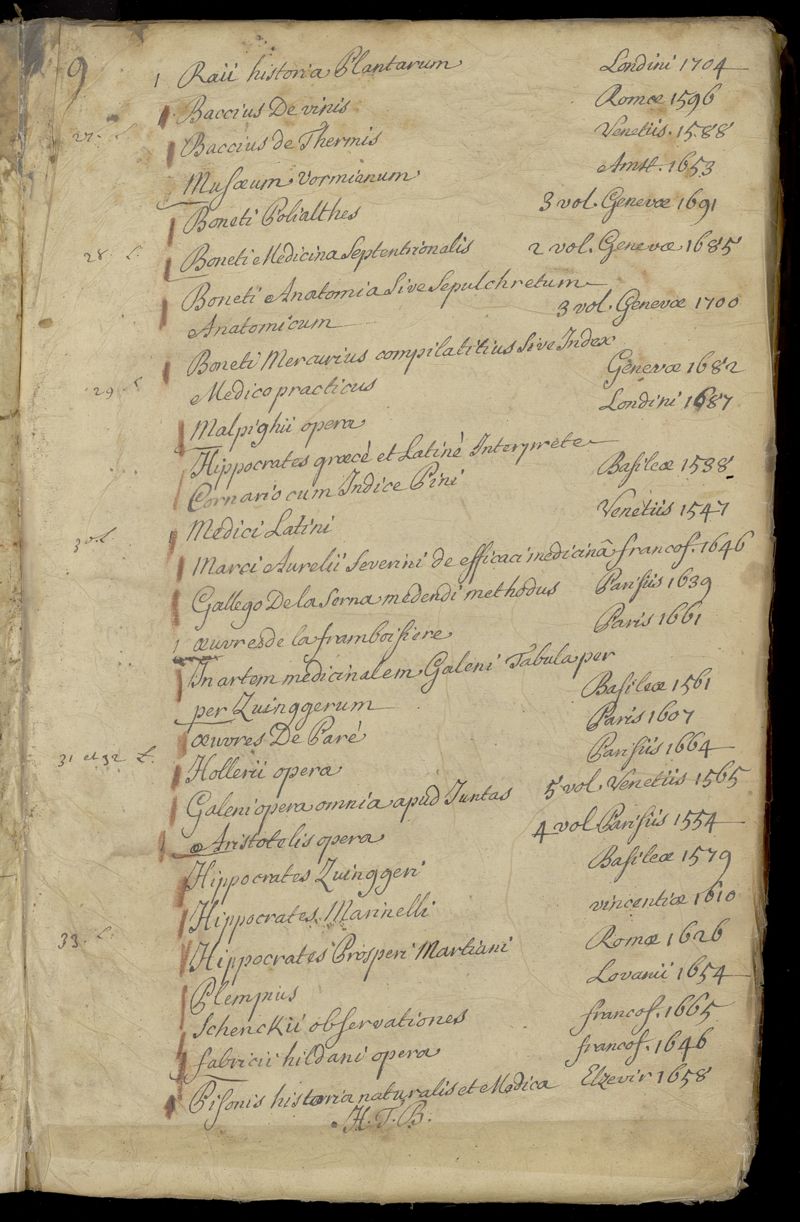 9
1 Raii historia Plantarum Londini 1704
Baccius De vinis Romæ 1596
27. L. Baccius de Thermis Venetiis. 1588
Musæum Vormianum Amst. 1653
Boneti Polialthes 3 vol. Genevæ 1691
28. L. Boneti Medicina Septentrionalis 2 vol. Genevæ 1685
Boneti Anatomia Sive Sepulchretum
Anatomicum 3 vol. Genevæ 1700
Boneti Mercurius compilatitius Sive Index
29. L Medico practicus Genevæ 1682
Malpighii opera Londini 1687
Hippocrates græcè et Latinè Interprete
Cornario cum Indice Pini Basileæ 1588
30. L Medici Latini Venetiis 1547
Marci Aurelii Severini de efficaci medicinâ francof. 1646
Gallego De la Serna medendi methodus Parisiis 1639
1 œuvres de la framboisiere Paris 1661
In artem medicinalem Galeni Tabula per
per Zuinggerum Basileæ 1561
œuvres De Paré Paris 1607
31 et 32 L. Hollerii opera Parisiis 1664
Galeni opera omnia apud Juntas 5 vol. Venetiis 1565
Aristotelis opera 4 vol Parisiis 1554
Hippocrates Zuinggeri Basileæ 1579
Hippocrates Marinelli vincentiæ 1610
33. L. Hippocrates Prosperi Martiani Romæ 1626
Plempius Lovanii 1654
Schenckii observationes francof. 1665
fabricii hildani opera francof. 1646
Pisonis historia naturalis et Medica Elzevir 1658
H. T. B.